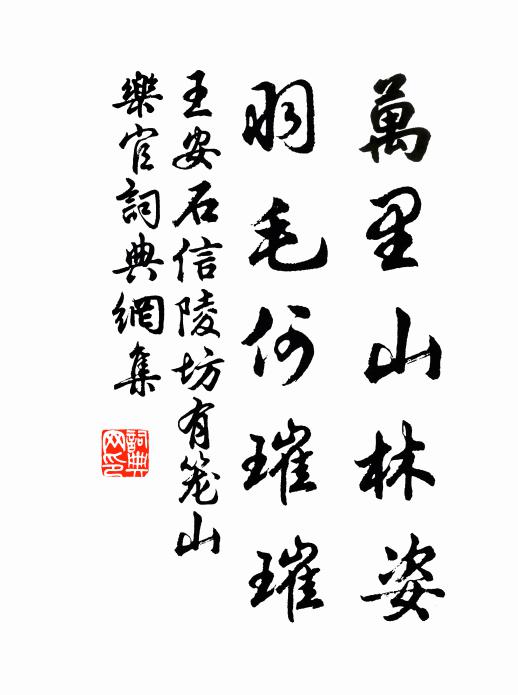 萬里山林姿
羽毛何璀璀
王安石信陵坊有笼山
樂官詞典網集
詞典
网印